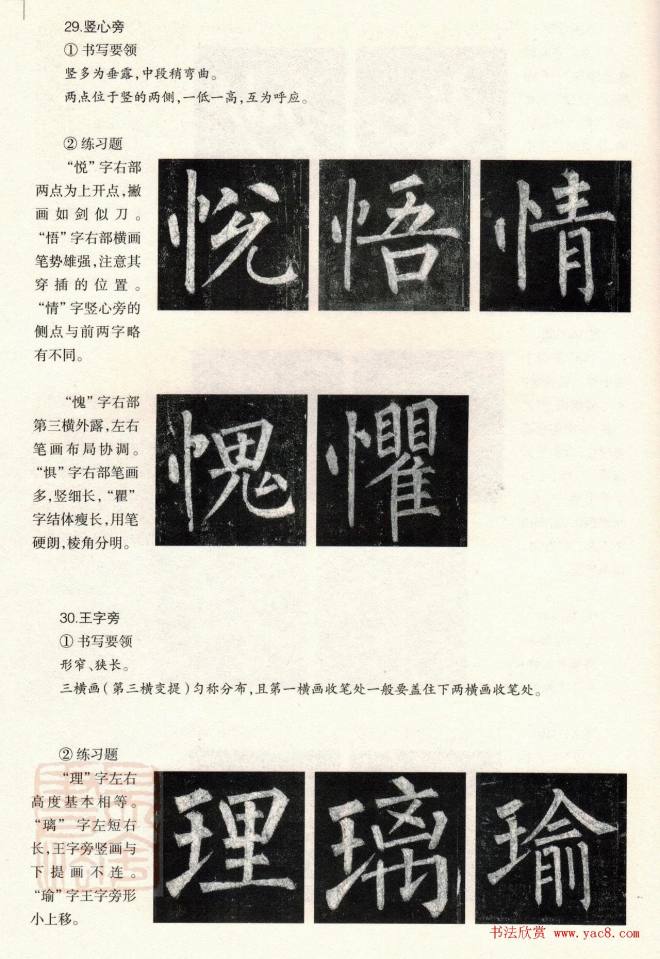 29.竖心旁
①书写要领
竖多为垂露,中段稍弯曲。
两点位于竖的两侧,一低一高,互为呼应。
②练习题
“悦”字右部
两点为上开点,撇
画如剑似刀。
“悟”字右部横画
笔势雄强,注意其
穿插的位置。
“情”字竖心旁的
侧点与前两字略
有不同。
悦 悟 情
“愧”字右部
第三横外露,左右
笔画布局协调。
“惧”字右部笔画
多,竖细长,“瞿”
字结体瘦长,用笔
硬朗,棱角分明。
愧 懼
30.王字旁
①书写要领
形窄、狭长。
三横画(第三横变提)匀称分布,且第一横画收笔处一般要盖住下两横画收笔处。
②练习题
“理”字左右
高度基本相等。
“璃”字左短右
长,王字旁竖画与
下提画不连。
“瑜”字王字旁形
小上移。
理 璃 瑜
书法欣赏 www.yac8.com